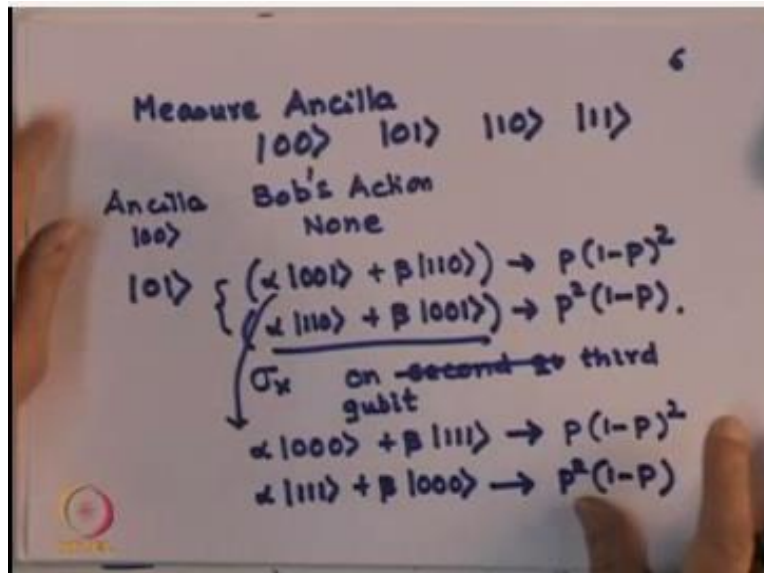 6
Measure Ancilla
|00⟩ |01⟩ |10⟩ |11⟩
Ancilla Bob's Action
|00⟩ None
|01⟩ { (α|001⟩ + β|110⟩) → p(1-p)²
(α|110⟩ + β|001⟩) → p²(1-p).
σx on second third
qubit
α|000⟩ + β|111⟩ → p(1-p)²
α|111⟩ + β|000⟩ → p²(1-p)